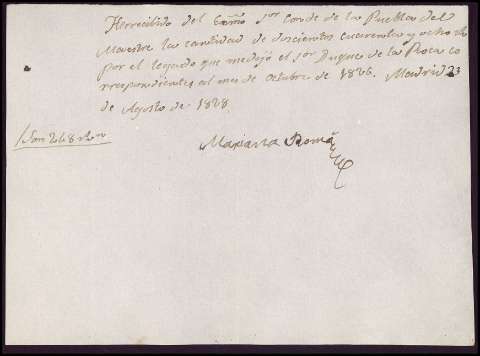 Herrecibido del Exmo Sor Conde de la Puebla del
Maestre la cantidad de doscientos cuarenta y ocho rs
por el legado que medejó el Sor Duque de la Roca co
rrespondientes al mes de Octubre de 1826. Madrid 23
de Agosto de 1828
Son 248 rs vn
Mariana Romá